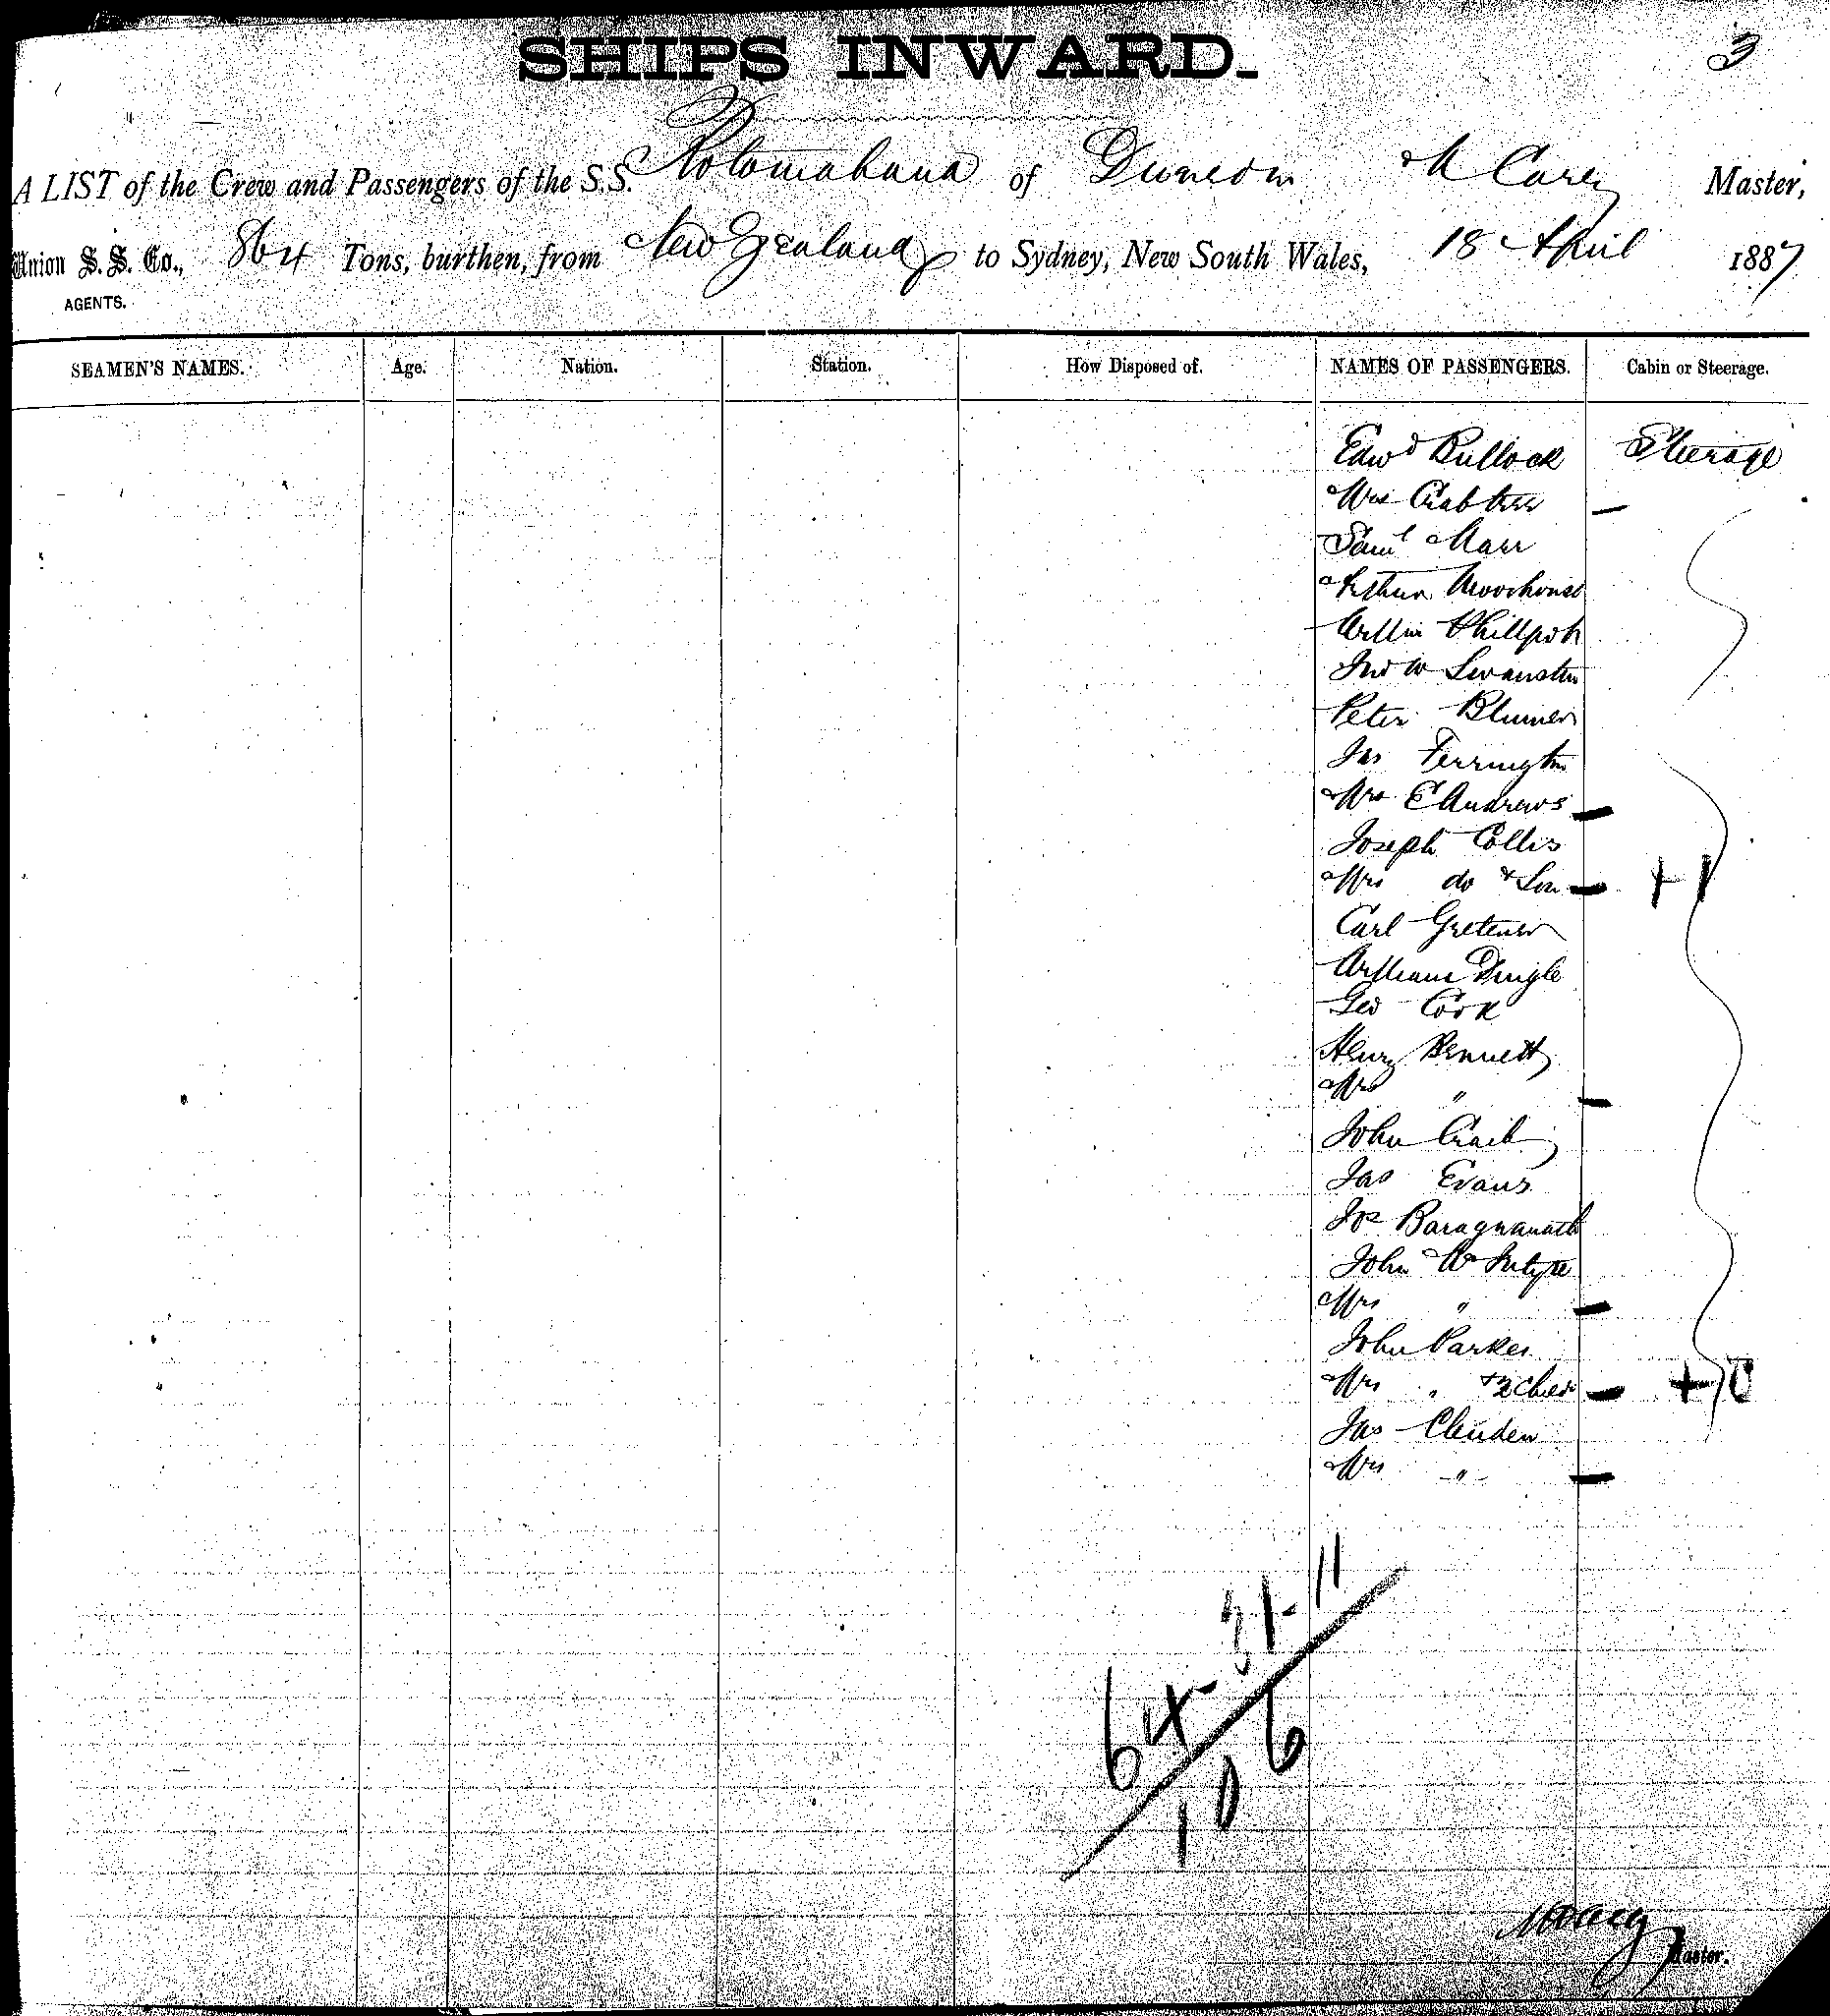 3
SHIPS INWARD.
A LIST of the Crew and Passengers of the S.S. Rotomahana of Dunedin M Carey Master,
Union S. S. Co., 864 Tons, burthen, from New Zealand to Sydney, New South Wales, 18 April 1887
AGENTS.
SEAMEN'S NAMES. Age. Nation. Station. How Disposed of. NAMES OF PASSENGERS. Cabin or Steerage.
Edwd Bullock Steerage
Mrs Crabtree —
Saml Marr
Arthur Moorhouse
Willm Phillpot
Jno W Swanston
Peter Blumer
Jas Ferrington
Mrs E Andrews —
Joseph Collis
Mrs do & Son — + 1
Carl Gretener
William Dingle
Geo Cook
Henry Bennett
Mrs " —
John Craib
Jas Evans
Jos Baragwanath
John McIntyre
Mrs " —
John Parkes
Mrs " & 2 Child —
Jas Clenden
Mrs " —
64 - 31 - 11
106
M Carey
Master.